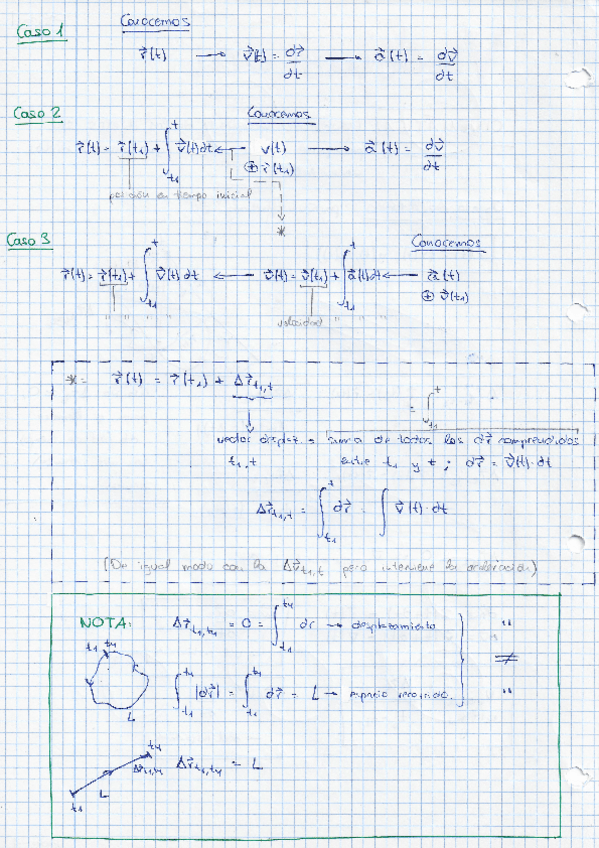 Caso 1
Conocemos
r⃗(t) → v⃗(t) = dr⃗/dt → a⃗(t) = dv⃗/dt
Caso 2
Conocemos
r⃗(t) = r⃗(t₁) + ∫_{t₁}^{t} v⃗(t) dt ← v(t) → a⃗(t) = dv⃗/dt
⊕ r⃗(t₁)
posición en tiempo inicial
*
Caso 3
Conocemos
r⃗(t) = r⃗(t₁) + ∫_{t₁}^{t} v⃗(t) dt ← v⃗(t) = v⃗(t₁) + ∫_{t₁}^{t} a⃗(t) dt ← a⃗(t)
⊕ v⃗(t₁)
" " " "
velocidad " " "
* = r⃗(t) = r⃗(t₁) + Δr⃗_{t₁,t}
= ∫_{t₁}^{t}
vector desplaz. = suma de todos los dr⃗ comprendidos
t₁,t entre t₁ y t ; dr⃗ = v⃗(t)·dt
Δr⃗_{t₁,t} = ∫_{t₁}^{t} dr⃗ = ∫ v⃗(t)·dt
(De igual modo con la Δv⃗_{t₁,t} pero interviene la aceleración)
NOTA:
Δr⃗_{t₁,t₄} = 0 = ∫_{t₁}^{t₄} dr → desplazamiento "
t₁ t₄
≠
∫_{t₁}^{t₄} |dr⃗| = ∫_{t₁}^{t₄} dr⃗ = L → espacio recorrido. "
L
t₄
Δr⃗_{t₁,t₄} Δr⃗_{t₁,t₄} = L
L
t₁